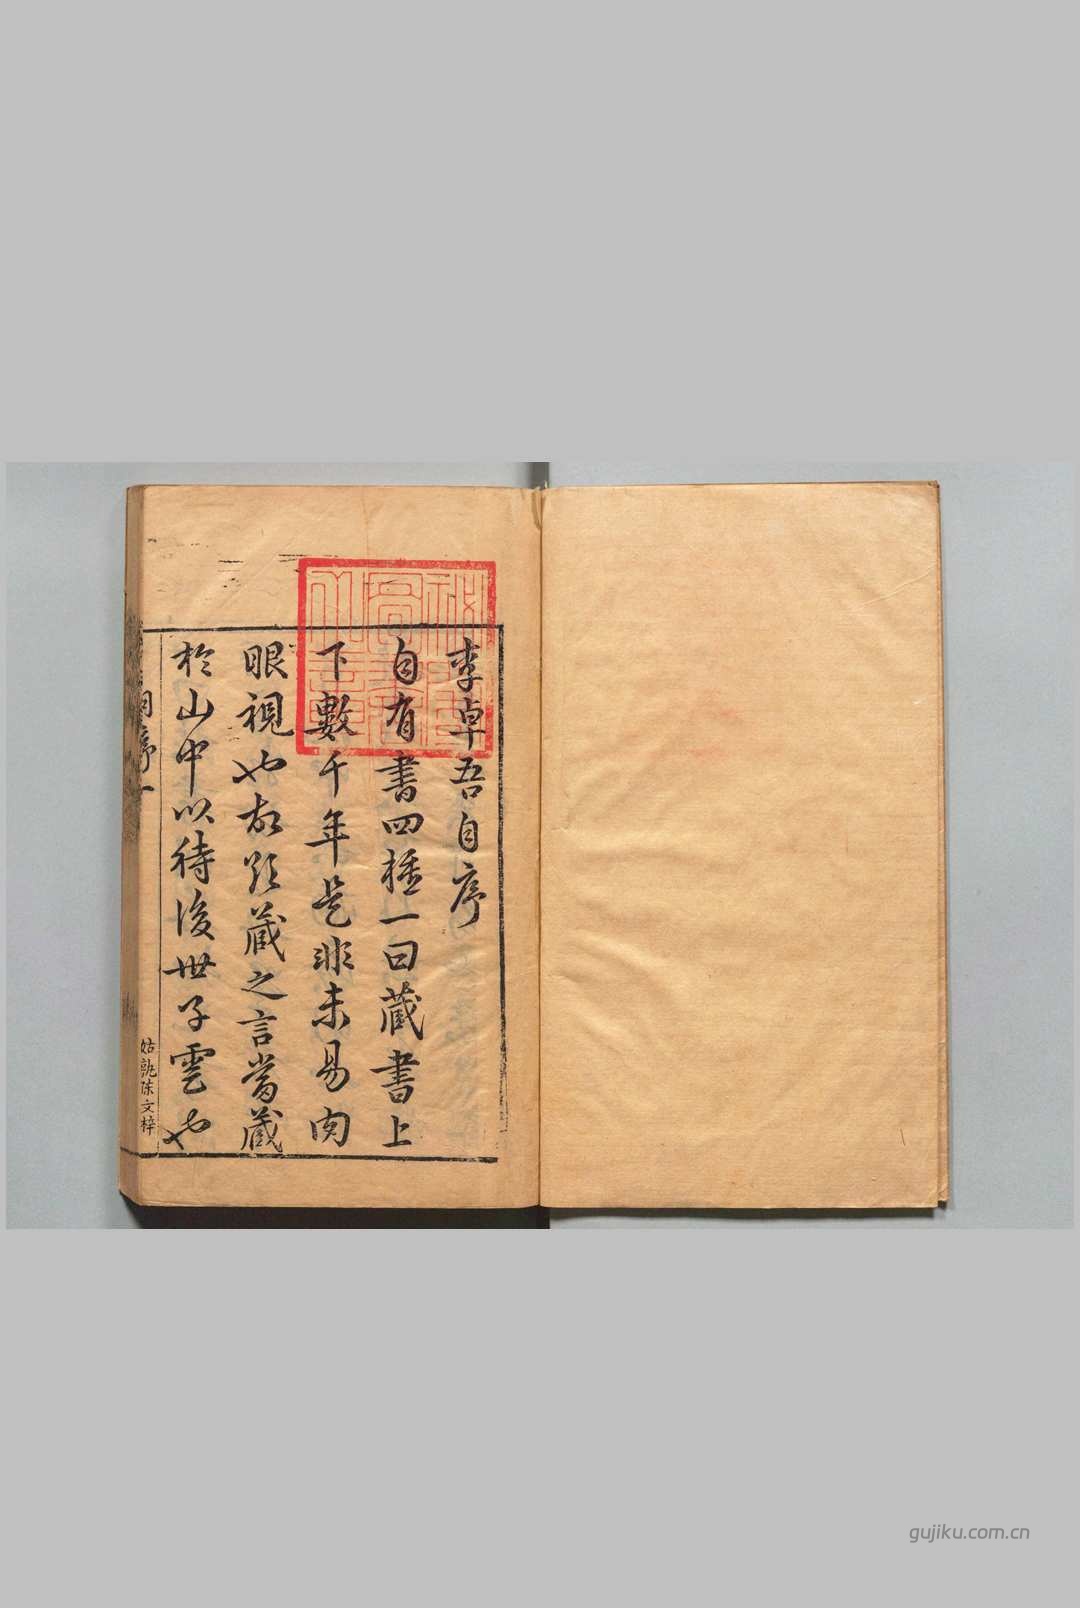 李卓吾自序
自有書四種一曰藏書上
下數千年是非未易肉
眼視也故欲藏之言當藏
於山中以待後世子雲也
序一
姑孰陈文梓
gujiku.com.cn